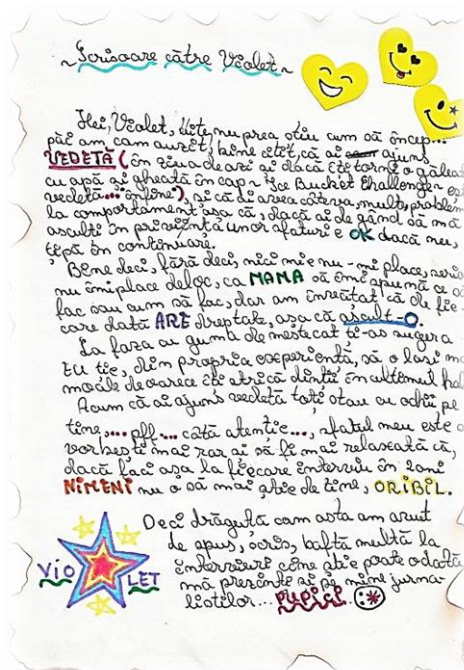 ~Scrisoare către Violet~
Hei, Violet, uite, nu prea știu cum să încep...
păi am cam auzit, bine citit, că ai ajuns
VEDETĂ (în ziua de azi și dacă îți torni o găleat
cu apă și gheață în cap ~ Ice Bucket Challenge~ eș
vedetă... înfine), și că ai avea câteva, multe, problem
la comportament așa că, dacă ai de gând să mă
asculți în privința unor sfaturi e OK dacă nu,
țipă în continuare.
Bine deci, fără deci, nici mie nu-mi place, serio
nu îmi place deloc, ca MAMA să îmi spună ce să
fac sau cum să fac, dar am învățat că de fie-
care dată ARE dreptate, așa că ascult-O.
La faza cu guma de mestecat ți-aș sugera
EU ție, din propria experiență, să o lași mo
mocile deoarece îți strică dinții în ultimul hal
Acum că ai ajuns vedetă toți stau cu ochii pe
tine,.... pff.... câtă atenție..., sfatul meu este s
vorbești mai rar și să fii mai relaxată că,
dacă faci așa la fiecare interviu în 2 oni
NIMENI nu o să mai știe de tine, ORIBIL.
Deci drăguță cam asta am avut
de spus, scris, baftă multă la
interviuri cine știe poate odată
mă prezinți și pe mine jurna-
liștilor... PUPICI :*
VIO LET